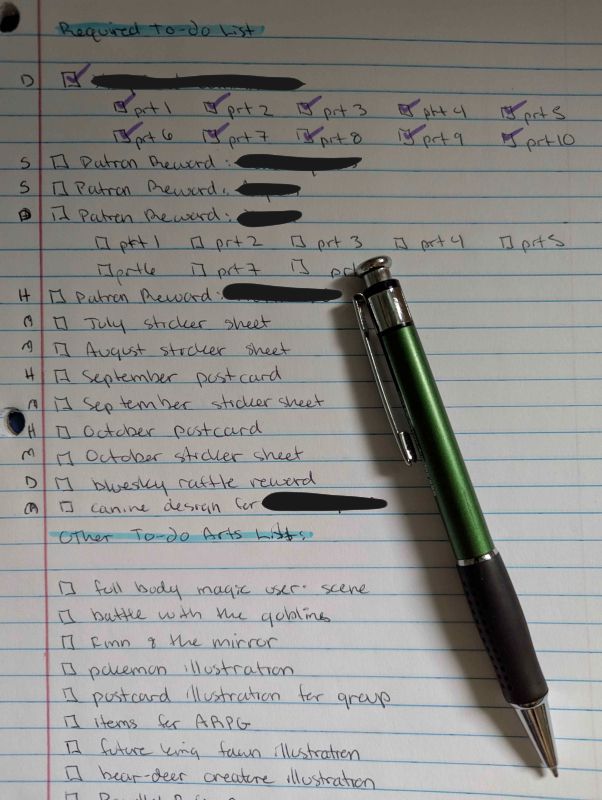 Required To-do List
D
prt 1 prt 2 prt 3 prt 4 prt 5
prt 6 prt 7 prt 8 prt 9 prt 10
S Patron Reward:
S Patron Reward:
D Patron Reward:
prt 1 prt 2 prt 3 prt 4 prt 5
prt 6 prt 7
H Patron Reward:
July sticker sheet
August sticker sheet
H September postcard
September sticker sheet
H October postcard
M October sticker sheet
D bluesky raffle reward
canine design for
Other To-do Arts Lists:
full body magic user: scene
battle with the goblins
Finn & the mirror
pokemon illustration
postcard illustration for group
items for ARPG
future king fawn illustration
bear-deer creature illustration